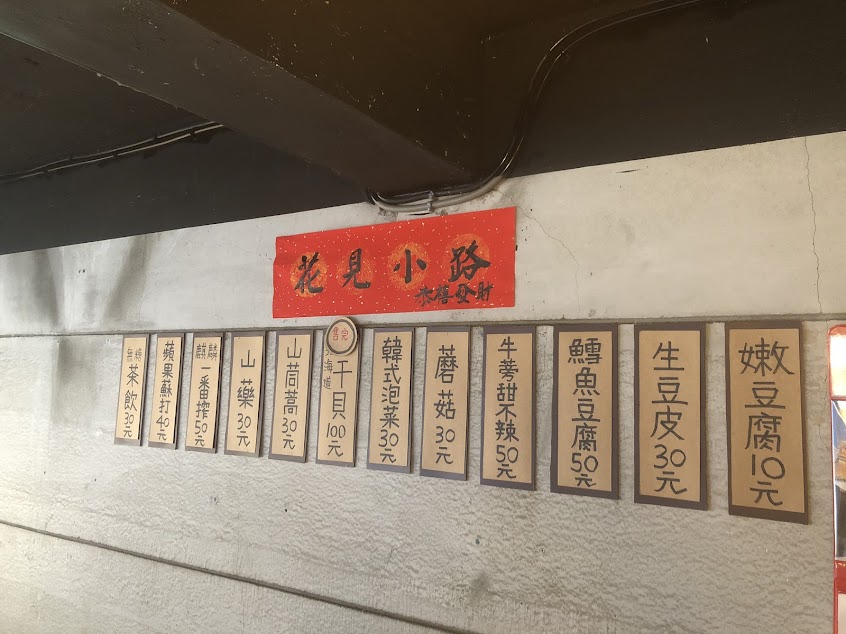 花見小路
恭禧發財
嫩豆腐10元
生豆皮30元
鱈魚豆腐50元
牛蒡甜不辣50元
蘑菇30元
韓式泡菜30元
北海道干貝100元
售完
山茼蒿30元
山藥30元
麒麟一番搾50元
蘋果蘇打40元
無糖茶飲30元